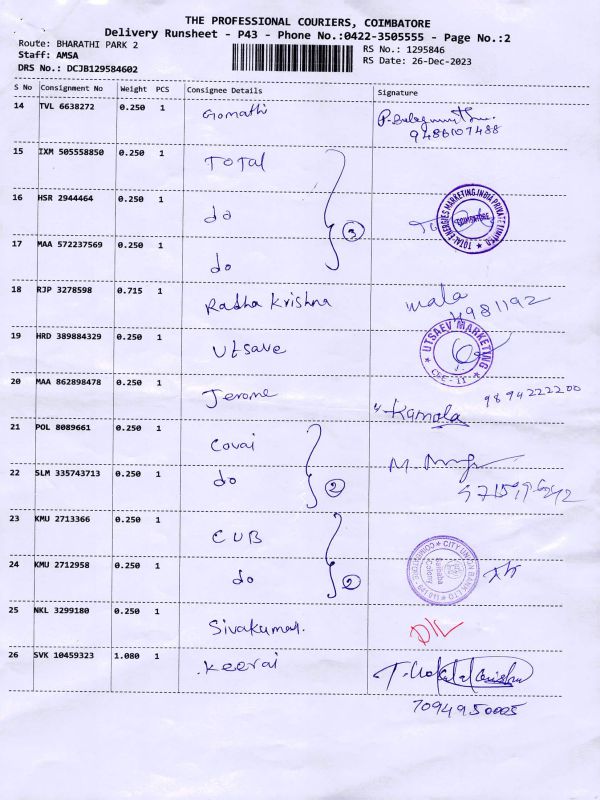 THE PROFESSIONAL COURIERS, COIMBATORE
Delivery Runsheet - P43 - Phone No.:0422-3505555 - Page No.:2
Route: BHARATHI PARK 2
RS No.: 1295846
Staff: AMSA
RS Date: 26-Dec-2023
DRS No.: DCJB129584602
S No Consignment No Weight PCS Consignee Details Signature
14 TVL 6638272 0.250 1 Gomathi
9486107488
15 IXM 505558850 0.250 1 TOTAL
16 HSR 2944464 0.250 1 do
3
TOTAL ENERGIES MARKETING INDIA PRIVATE LIMITED
COIMBATORE
17 MAA 572237569 0.250 1 do
18 RJP 3278598 0.715 1 Radha Krishna mala
4981192
19 HRD 389884329 0.250 1 Utsave
UTSAEV MARKETING
CBE - 11
20 MAA 862898478 0.250 1 Jerome
Kamala 9894222200
21 POL 8089661 0.250 1 Covai
22 SLM 335743713 0.250 1 do 2
23 KMU 2713366 0.250 1 CUB
24 KMU 2712958 0.250 1 do 2
CITY UNION BANK LTD
Saibaba
Colony
25 NKL 3299180 0.250 1 Sivakumar.
D/L
26 SVK 10459323 1.080 1 Keerai
7094950005